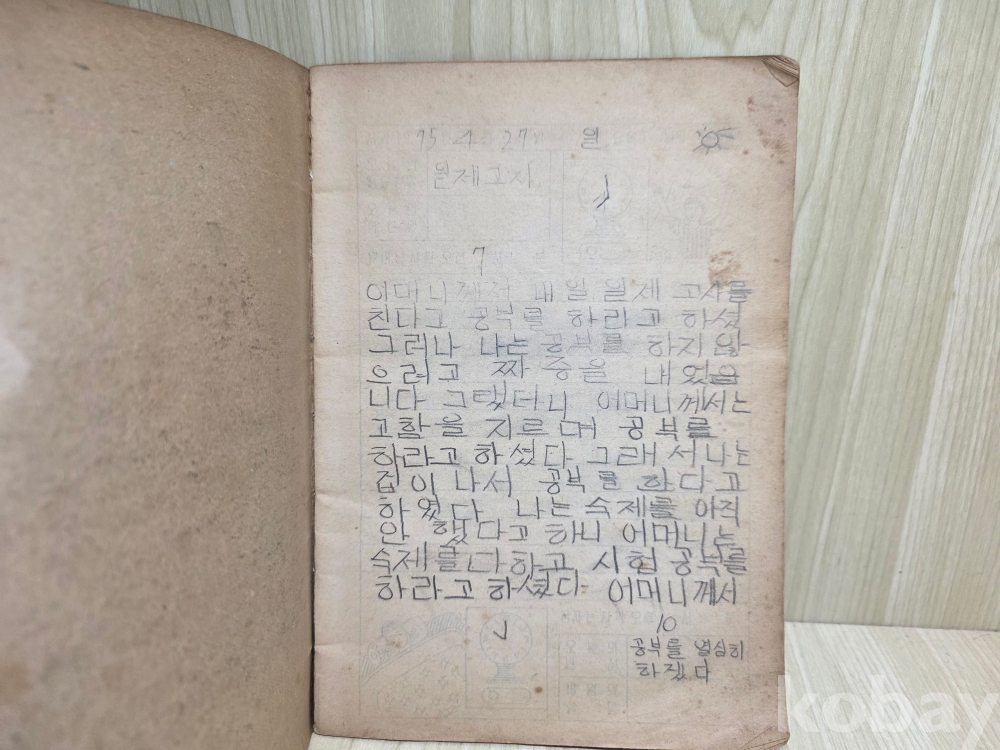 75 4 27 월
월제고시
7
어머니께서 내일 월제 고사를
친다고 공부를 하라고 하셨
그러나 나는 공부를 하지 않
으려고 짜증을 내었습
니다 그랬더니 어머니께서는
고함을 지르며 공부를
하라고 하셨다 그래서 나는
겁이 나서 공부를 한다고
하였다 나는 숙제를 아직
안 했다고 하니 어머니는
숙제를 다하고 시험 공부를
하라고 하셨다 어머니께서
10
공부를 열심히
하겠다
kobay